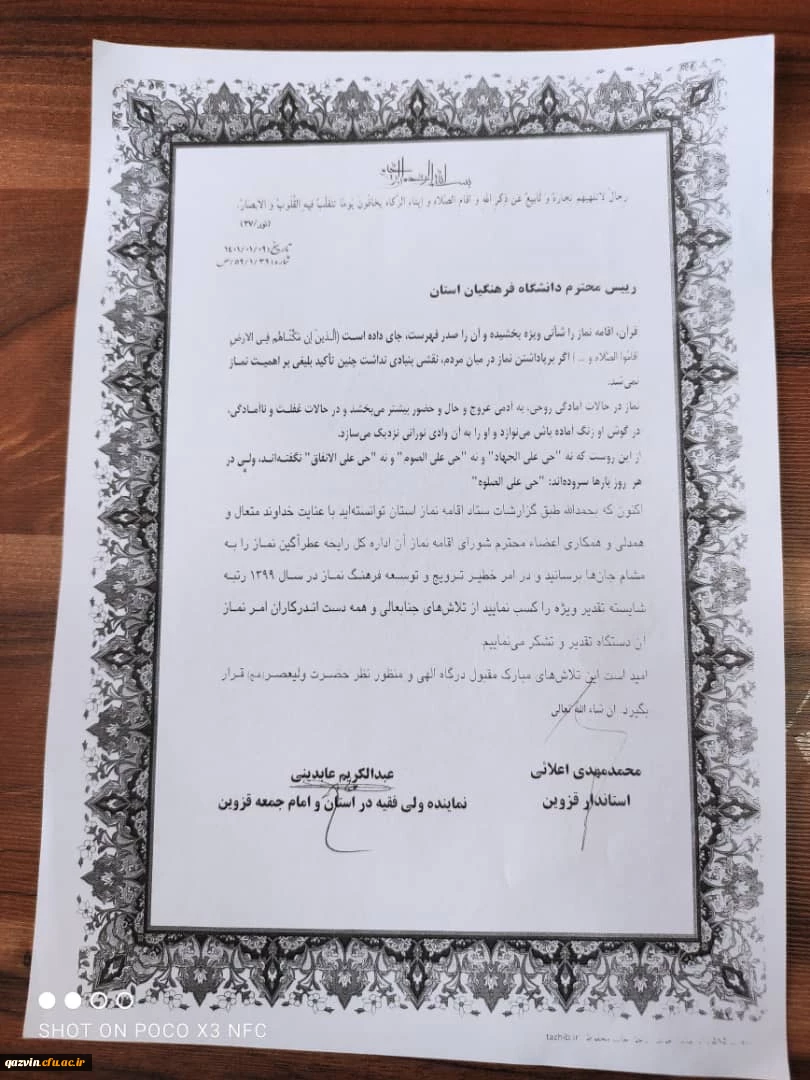 بسم الله الرحمن الرحیم
رجالٌ لاتلهیهم تجارة و لابیعٌ عن ذکر الله و اقام الصّلاه و ایتاء الزّکاه یخافون یوماً تتقلّبُ فیه القُلُوبُ و الابصارُ.
(نور/۳۷)
تاریخ: ۱۴۰۱/۰۱/۰۹
شماره: ۵۹/۱/۳۹/ص
رییس محترم دانشگاه فرهنگیان استان
قرآن، اقامه نماز را شأنی ویژه بخشیده و آن را صدر فهرست، جای داده است (الّذینَ إن مَکّنّاهُم فِی الارضِ
اَقامُوا الصَّلاه و ... ) اگر برپاداشتن نماز در میان مردم، نقشی بنیادی نداشت چنین تأکید بلیغی بر اهمیت نماز
نمی شد.
نماز در حالات آمادگی روحی، به آدمی عروج و حال و حضور بیشتر می‌بخشد و در حالات غفلت و ناآمادگی،
در گوش او زنگ آماده باش می‌نوازد و او را به آن وادی نورانی نزدیک می‌سازد.
از این روست که نه "حی علی الجهاد" و نه "حی علی الصوم" و نه "حی علی الانفاق" نگفته‌اند، ولی در
هر روز بارها سروده‌اند: "حی علی الصلوه"
اکنون که بحمدالله طبق گزارشات ستاد اقامه نماز استان توانسته‌اید با عنایت خداوند متعال و
همدلی و همکاری اعضاء محترم شورای اقامه نماز آن اداره کل رایحه عطرآگین نماز را به
مشام جان‌ها برسانید و در امر خطیر ترویج و توسعه فرهنگ نماز در سال ۱۳۹۹ رتبه
شایسته تقدیر ویژه را کسب نمایید از تلاش‌های جنابعالی و همه دست اندرکاران امر نماز
آن دستگاه تقدیر و تشکر می‌نماییم.
امید است این تلاش‌های مبارک مقبول درگاه الهی و منظور نظر حضرت ولیعصر(عج) قرار
بگیرد. ان شاء الله تعالی
محمدمهدی اعلائی
استاندار قزوین
عبدالکریم عابدینی
نماینده ولی فقیه در استان و امام جمعه قزوین
tazhib.ir
SHOT ON POCO X3 NFC
qazvin.cfu.ac.ir